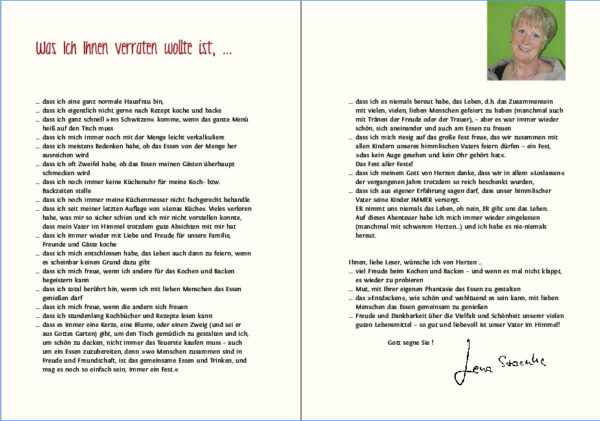 Was Ich Ihnen verraten wollte ist, ...
... dass ich eine ganz normale Hausfrau bin,
... dass ich eigentlich nicht gerne nach Rezept koche und backe
... dass ich ganz schnell »ins Schwitzen« komme, wenn das ganze Menü
heiß auf den Tisch muss
... dass ich mich immer noch mit der Menge leicht verkalkuliere
... dass ich meistens Bedenken habe, ob das Essen von der Menge her
ausreichen wird
... dass ich oft Zweifel habe, ob das Essen meinen Gästen überhaupt
schmecken wird
... dass ich noch immer keine Küchenuhr für meine Koch- bzw.
Backzeiten stelle
... dass ich noch immer meine Küchenmesser nicht fachgerecht behandle
... dass ich seit meiner letzten Auflage von »Lenas Küche« Vieles verloren
habe, was mir so sicher schien und ich mir nicht vorstellen konnte,
dass mein Vater im Himmel trotzdem gute Absichten mit mir hat
... dass ich immer wieder mit Liebe und Freude für unsere Familie,
Freunde und Gäste koche
... dass ich mich entschlossen habe, das Leben auch dann zu feiern, wenn
es scheinbar keinen Grund dazu gibt
... dass ich mich freue, wenn ich andere für das Kochen und Backen
begeistern kann
... dass ich total berührt bin, wenn ich mit lieben Menschen das Essen
genießen darf
... dass ich mich freue, wenn die andern sich freuen
... dass ich stundenlang Kochbücher und Rezepte lesen kann
... dass es immer eine Kerze, eine Blume, oder einen Zweig (und sei er
aus Gottes Garten) gibt, um den Tisch gemütlich zu gestalten und ich,
um schön zu decken, nicht immer das Teuerste kaufen muss – auch
um ein Essen zuzubereiten, denn »wo Menschen zusammen sind in
Freude und Freundschaft, ist das gemeinsame Essen und Trinken, und
mag es noch so einfach sein, immer ein Fest.«
... dass ich es niemals bereut habe, das Leben, d.h. das Zusammensein
mit vielen, vielen, lieben Menschen gefeiert zu haben (manchmal auch
mit Tränen der Freude oder der Trauer), – aber es war immer wieder
schön, sich aneinander und auch am Essen zu freuen
... dass ich mich riesig auf das große Fest freue, das wir zusammen mit
allen Kindern unseres himmlischen Vaters feiern dürfen – ein Fest,
»das kein Auge gesehen und kein Ohr gehört hat«.
Das Fest aller Feste!
... dass ich meinem Gott von Herzen danke, dass wir in allem »Loslassen«
der vergangenen Jahre trotzdem so reich beschenkt wurden,
... dass ich aus eigener Erfahrung sagen darf, dass unser himmlischer
Vater seine Kinder IMMER versorgt.
ER nimmt uns niemals das Leben, oh nein, ER gibt uns das Leben.
Auf dieses Abenteuer habe ich mich immer wieder eingelassen
(manchmal mit schwerem Herzen...) und ich habe es nie-niemals
bereut.
Ihnen, liebe Leser, wünsche ich von Herzen ...
... viel Freude beim Kochen und Backen – und wenn es mal nicht klappt,
es wieder zu probieren
... Mut, mit Ihrer eigenen Phantasie das Essen zu gestalten
... das »Entdecken«, wie schön und wohltuend es sein kann, mit lieben
Menschen das Essen gemeinsam zu genießen
... Freude und Dankbarkeit über die Vielfalt und Schönheit unserer vielen
guten Lebensmittel – so gut und liebevoll ist unser Vater im Himmel!
Gott segne Sie !
Lena